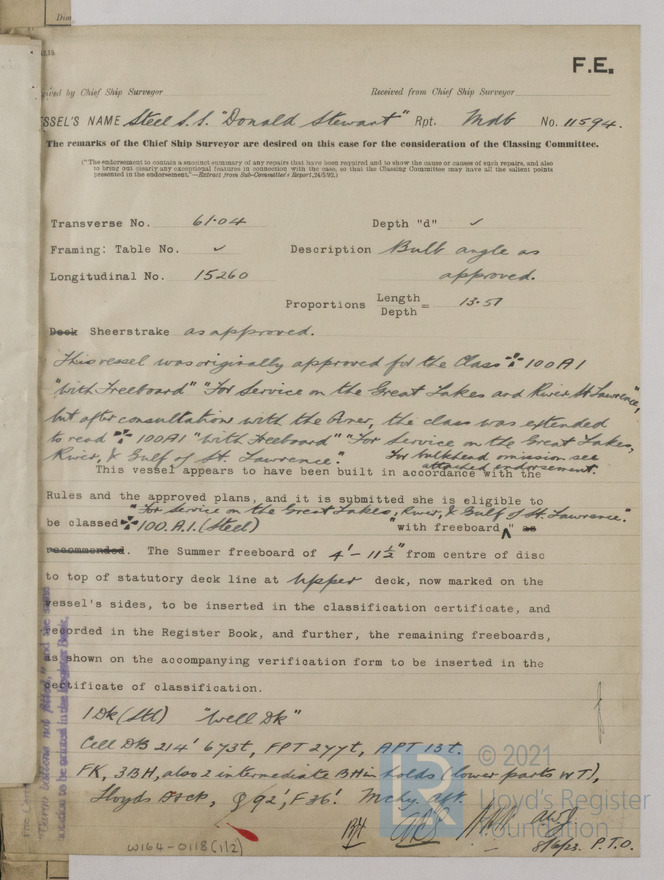 F.E.
ived by Chief Ship Surveyor
Received from Chief Ship Surveyor
ESSEL'S NAME Steel S.S. "Donald Stewart" Rpt. Mdb No. 11594.
The remarks of the Chief Ship Surveyor are desired on this case for the consideration of the Classing Committee.
("The endorsement to contain a succinct summary of any repairs that have been required and to show the cause or causes of such repairs, and also
to bring out clearly any exceptional features in connection with the case, so that the Classing Committee may have all the salient points
presented in the endorsement."—Extract from Sub-Committee's Report, 24/5/92.)
Transverse No. 61.04 Depth "d" ✓
Framing: Table No. ✓ Description Bulb angle as
Longitudinal No. 15260 approved.
Proportions Length/Depth = 13.57
Deck Sheerstrake as approved.
This vessel was originally approved for the Class ✠ 100A1
"with Freeboard" "For Service on the Great Lakes and River St Lawrence",
but after consultations with the Owner, the class was extended
to read ✠ 100A1 "with Freeboard" "For Service on the Great Lakes,
River, & Gulf of St. Lawrence". For bulkhead omission see
attached endorsement.
This vessel appears to have been built in accordance with the
Rules and the approved plans, and it is submitted she is eligible to
"For Service on the Great Lakes, River, & Gulf of St. Lawrence".
be classed ✠ 100.A.1.(Steel) "with freeboard" as
recommended. The Summer freeboard of 4'-11½" from centre of disc
to top of statutory deck line at Upper deck, now marked on the
vessel's sides, to be inserted in the classification certificate, and
recorded in the Register Book, and further, the remaining freeboards,
as shown on the accompanying verification form to be inserted in the
certificate of classification.
1 Dk (Stl) "Well Dk"
Cell DB 214' 673t, FPT 277t, APT 13t.
FK, 3BH, also 2 intermediate BH in holds (lower parts WT),
Lloyds A&CP, Q 92', F 36'. Mchy. Aft.
8/6/23. P.T.O.
W164-0118(1/2)
© 2021
Lloyd's Register
Foundation